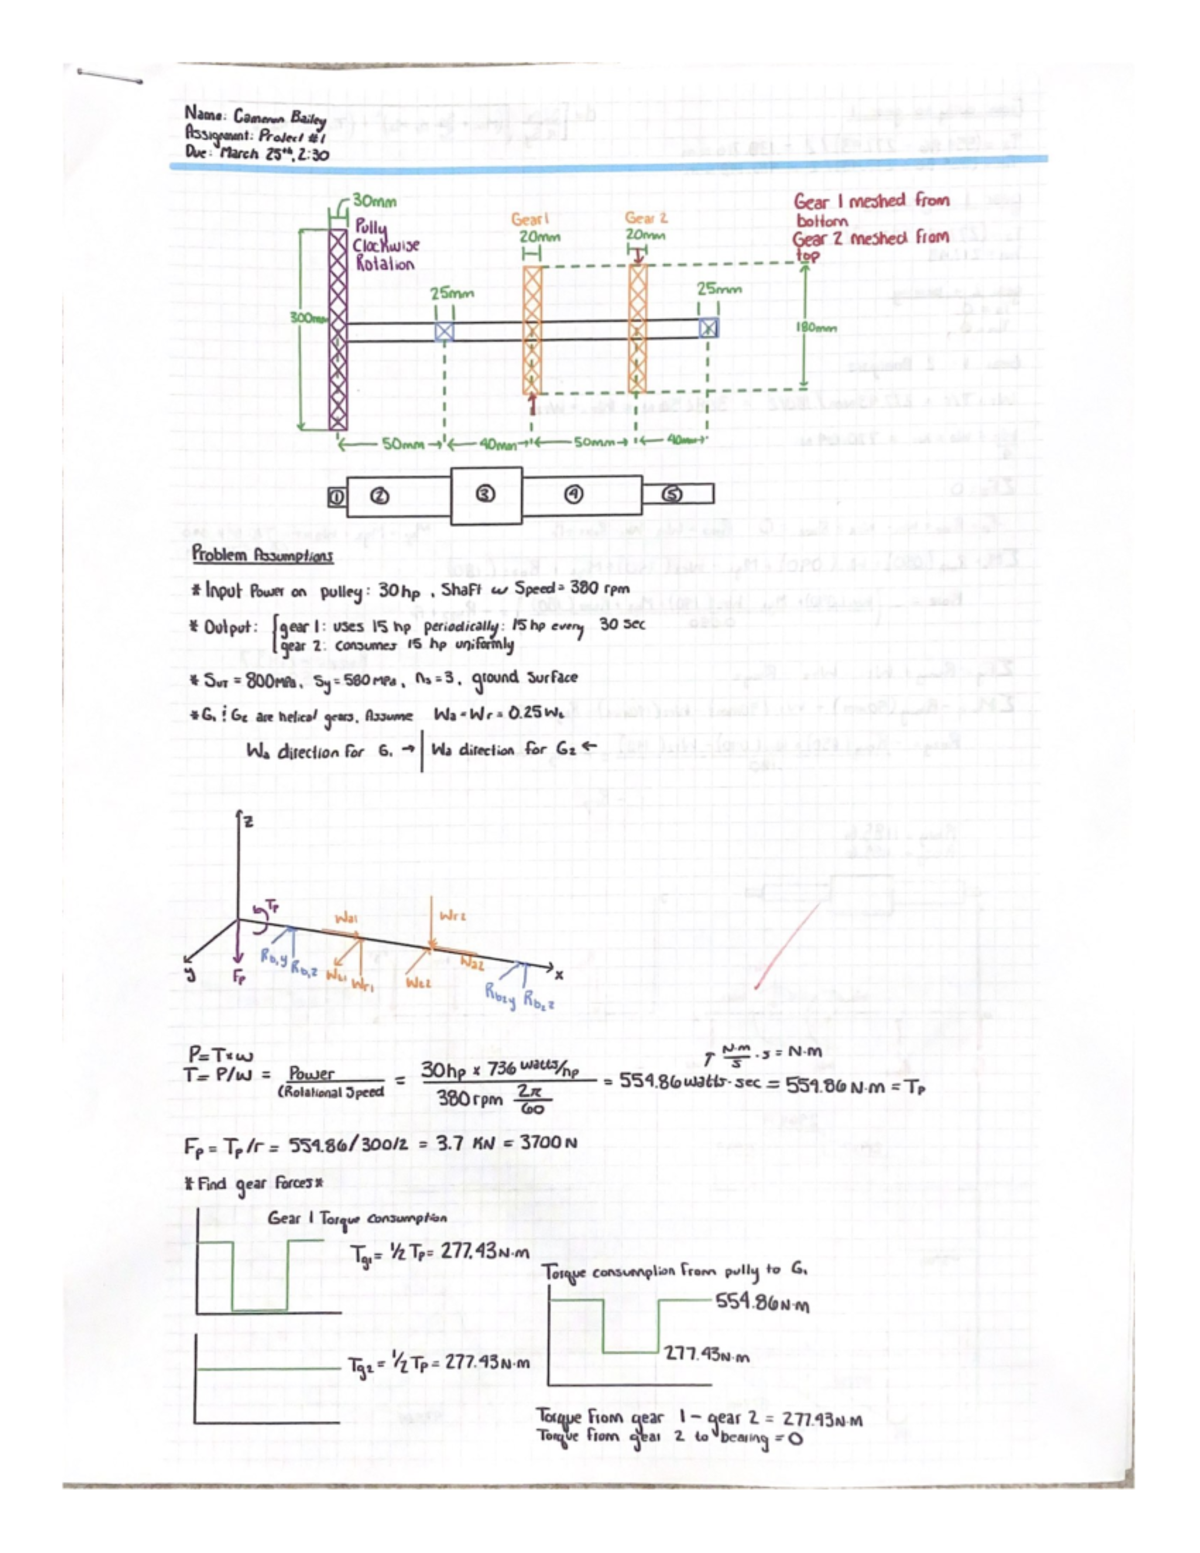 Name: Cameron Bailey
Assignment: Project #1
Due: March 25th, 2:30
30mm
Pully
Clockwise
Rotation
300mm
25mm
Gear 1
20mm
Gear 2
20mm
25mm
180mm
Gear 1 meshed from
bottom
Gear 2 meshed from
top
50mm
40mm
50mm
40mm
① ② ③ ④ ⑤
Problem Assumptions
* Input Power on pulley: 30 hp, Shaft w Speed = 380 rpm
* Output: { gear 1: uses 15 hp periodically: 15 hp every 30 sec
gear 2: consumes 15 hp uniformly
* Sut = 800 MPa, Sy = 580 MPa, ns = 3, ground surface
* G1 & G2 are helical gears, Assume Wa = Wr = 0.25 Wt
Wa direction for G1 → | Wa direction for G2 ←
z
Tp
Wa1
Wr2
Rb1y Rb1z
Wt1
Wr1
Wt2
Wa2
x
y
Fp
Rb2y Rb2z
P = T×w
T = P/w = Power / (Rotational Speed = 30hp × 736 watts/hp / 380 rpm 2π/60 = 554.86 watts·sec = 554.86 N·m = Tp
↑ N·m/s · s = N·m
Fp = Tp/r = 554.86/300/2 = 3.7 KN = 3700 N
* Find gear forces *
Gear 1 Torque Consumption
Tg1 = ½ Tp = 277.43 N·m
Torque consumption from pully to G1
554.86 N·m
277.43 N·m
Tg2 = ½ Tp = 277.43 N·m
Torque from gear 1 - gear 2 = 277.43 N·M
Torque from gear 2 to bearing = 0